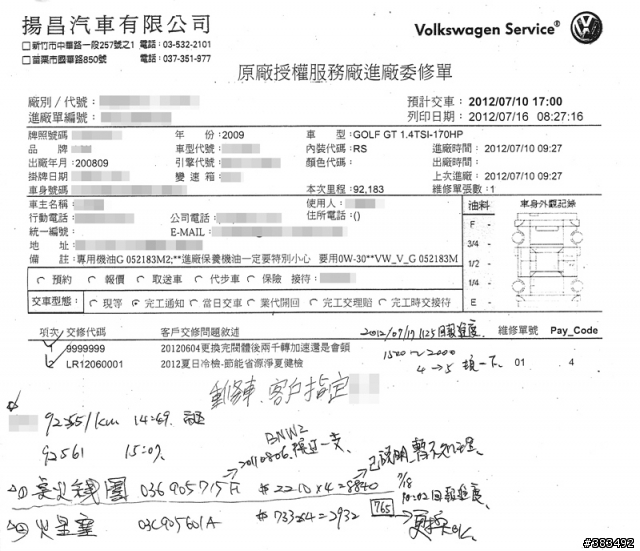 揚昌汽車有限公司
Volkswagen Service®
□新竹市中華路一段257號之1 電話:03-532-2101
□苗栗市國華路850號 電話:037-351-977
原廠授權服務廠進廠委修單
廠別/代號:
預計交車:2012/07/10 17:00
進廠單編號:
列印日期:2012/07/16 08:27:16
牌照號碼 年 份:2009 車 型:GOLF GT 1.4TSI-170HP
品 牌 車型代號: 內裝代碼:RS 進廠時間:2012/07/10 09:27
出廠年月:200809 引擎代號: 顏色代碼: 出廠時間:
掛牌日期 變 速 箱: 上次進廠:2012/07/10 09:27
車身號碼 本次里程:92,183 維修單張數:1
車主名稱: 使用人: 油料 車身外觀記錄
行動電話: 公司電話: 住所電話:()
統一編號: E-MAIL
地 址:
備 註:專用機油G 052183M2;**進廠保養機油一定要特別小心 要用0W-30**VW_V_G 052183M
F
3/4
1/2
1/4
E
預約 報價 取送車 代步車 保險 接待:
交車型態: 現等 完工通知 當日交車 業代開回 完工交理賠 完工時交接待
項次 交修代碼 客戶交修問題敘述 維修單號 Pay_Code
1 9999999 20120604更換完閥體後兩千轉加速還是會頓
2 LR12060001 2012夏日冷檢-節能省源淨夏健檢 01 4
2012/07/17 1125
1500~2000
4→5
重修車,客戶指定
92551km 14:49
92561 15:07
036905715F #2210×4=8840
② 火星塞 03C905601A #733×4=2932 765
#383492